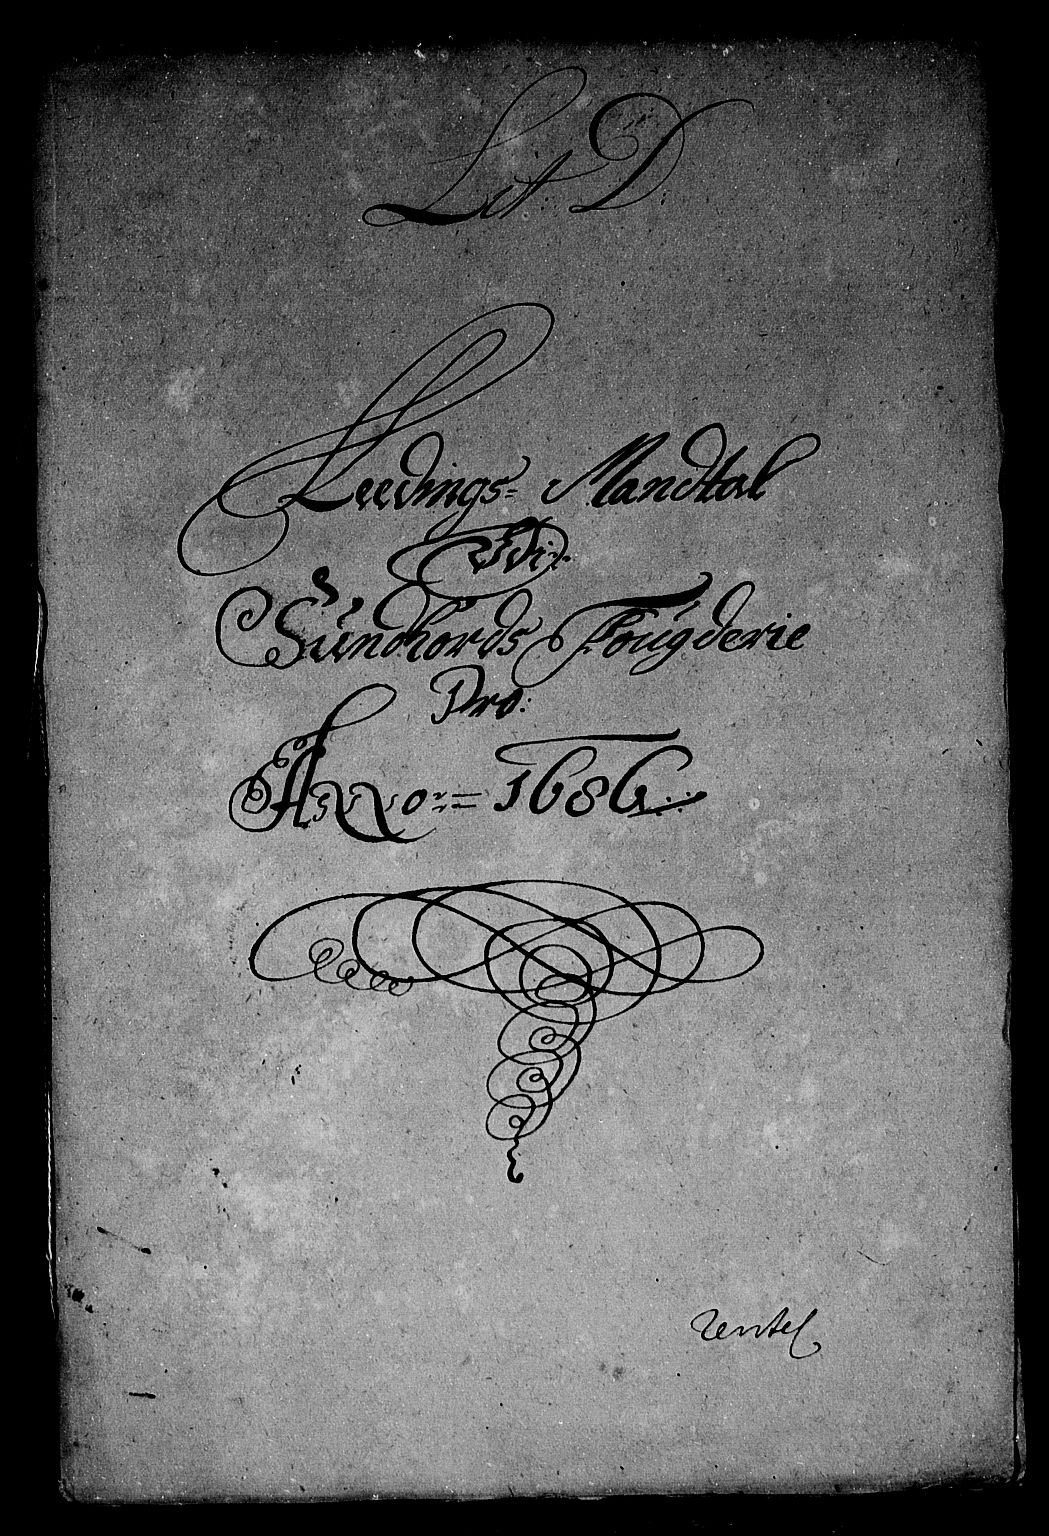 Lit: D
Leedings= Mandtal
Udi
Sündhords Fougderie
Pro:
Anno:= 1686.